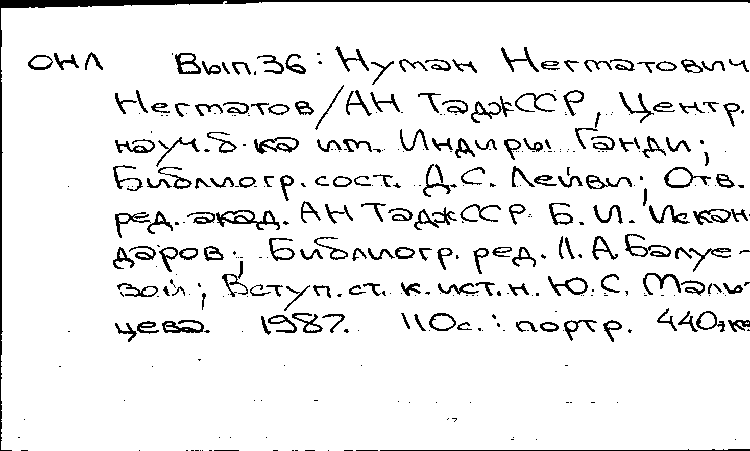 ОНЛ Вып.36: Нуман Негматович
Негматов/АН ТаджССР, Центр.
науч.б-ка им. Индиры Ганди;
Библиогр.сост. Д.С. Лейви; Отв.
ред. акад. АН ТаджССР Б.И. Искан-
даров; Библиогр. ред. Л.А.Балуе-
вой; Вступ.ст. к.ист.н. Ю.С. Маль-
цева. 1987. 110с.: портр. 440экз